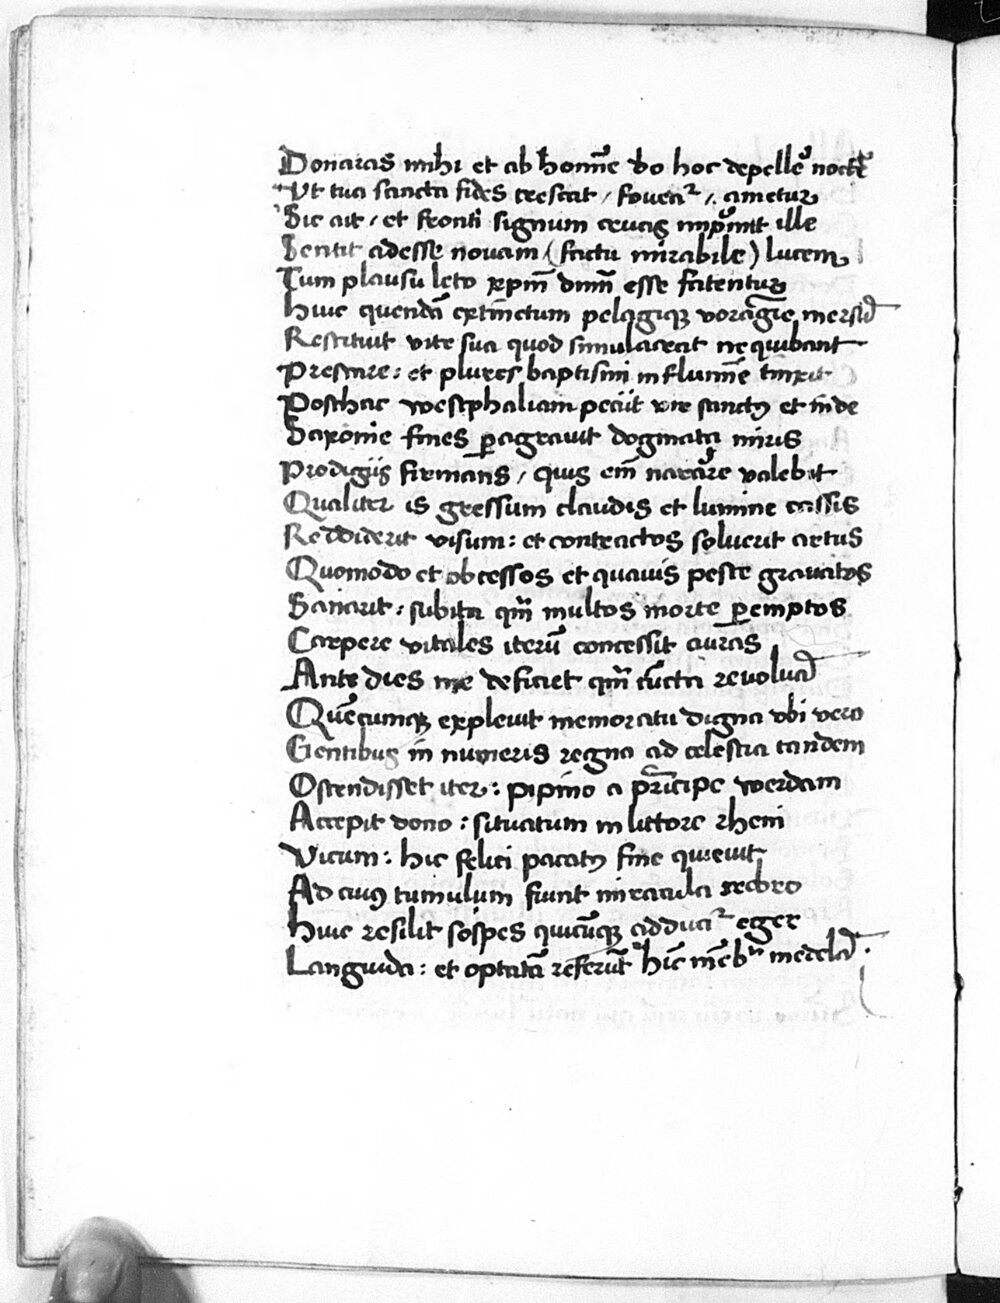 Donaras mihi et ab hom̄ie do hoc depelle᷑ nocte᷑
Ut tua sancta fides crescat / fouea᷑ / ametur
Sic ait / et fronti signum crucis imp̄mit ille
Sentit adesse nouam (factu mirabile) lucem
Tum plausu leto xpm̄ dnm̄ esse fatentur
Huic quendā extinctum pelagiq; voragīe mersū
Restituit vite sua quod simulacrat nequibant
Prestare : et plures baptismi in flumīe tinxit
Posthac westphaliam peciit vir sanctꝰ et inde
Saxonie fines ꝑagrauit dogmata miris
Prodigiis firmans / quis em̄ narare valebit
Qualiter is gressum claudis et lumine cassis
Reddiderit visum : et contractos soluerit artus
Quomodo et obcessos et quauis peste grauatos
Sanarit : subita qm̄ multos morte ꝑemptos
Carpere vitales iterū concessit auras
Ante dies me deficiet qm̄ cūcta reuoluā
Quēcumq; expleuit memoratu digna vbi vero
Gentibus in numeris regna ad celestia tandem
Ostendisset iter : pipino a prīcipe werdam
Accepit dono : situatum in littore rheni
Vicum : hic felici pacatꝰ fine quieuit
Ad cuiꝰ tumulum fiunt miracula crebro
Huic resilit sospes quicūq; adduci᷑ eger
Languida : et optatā referūt hīc mēbra medelā .